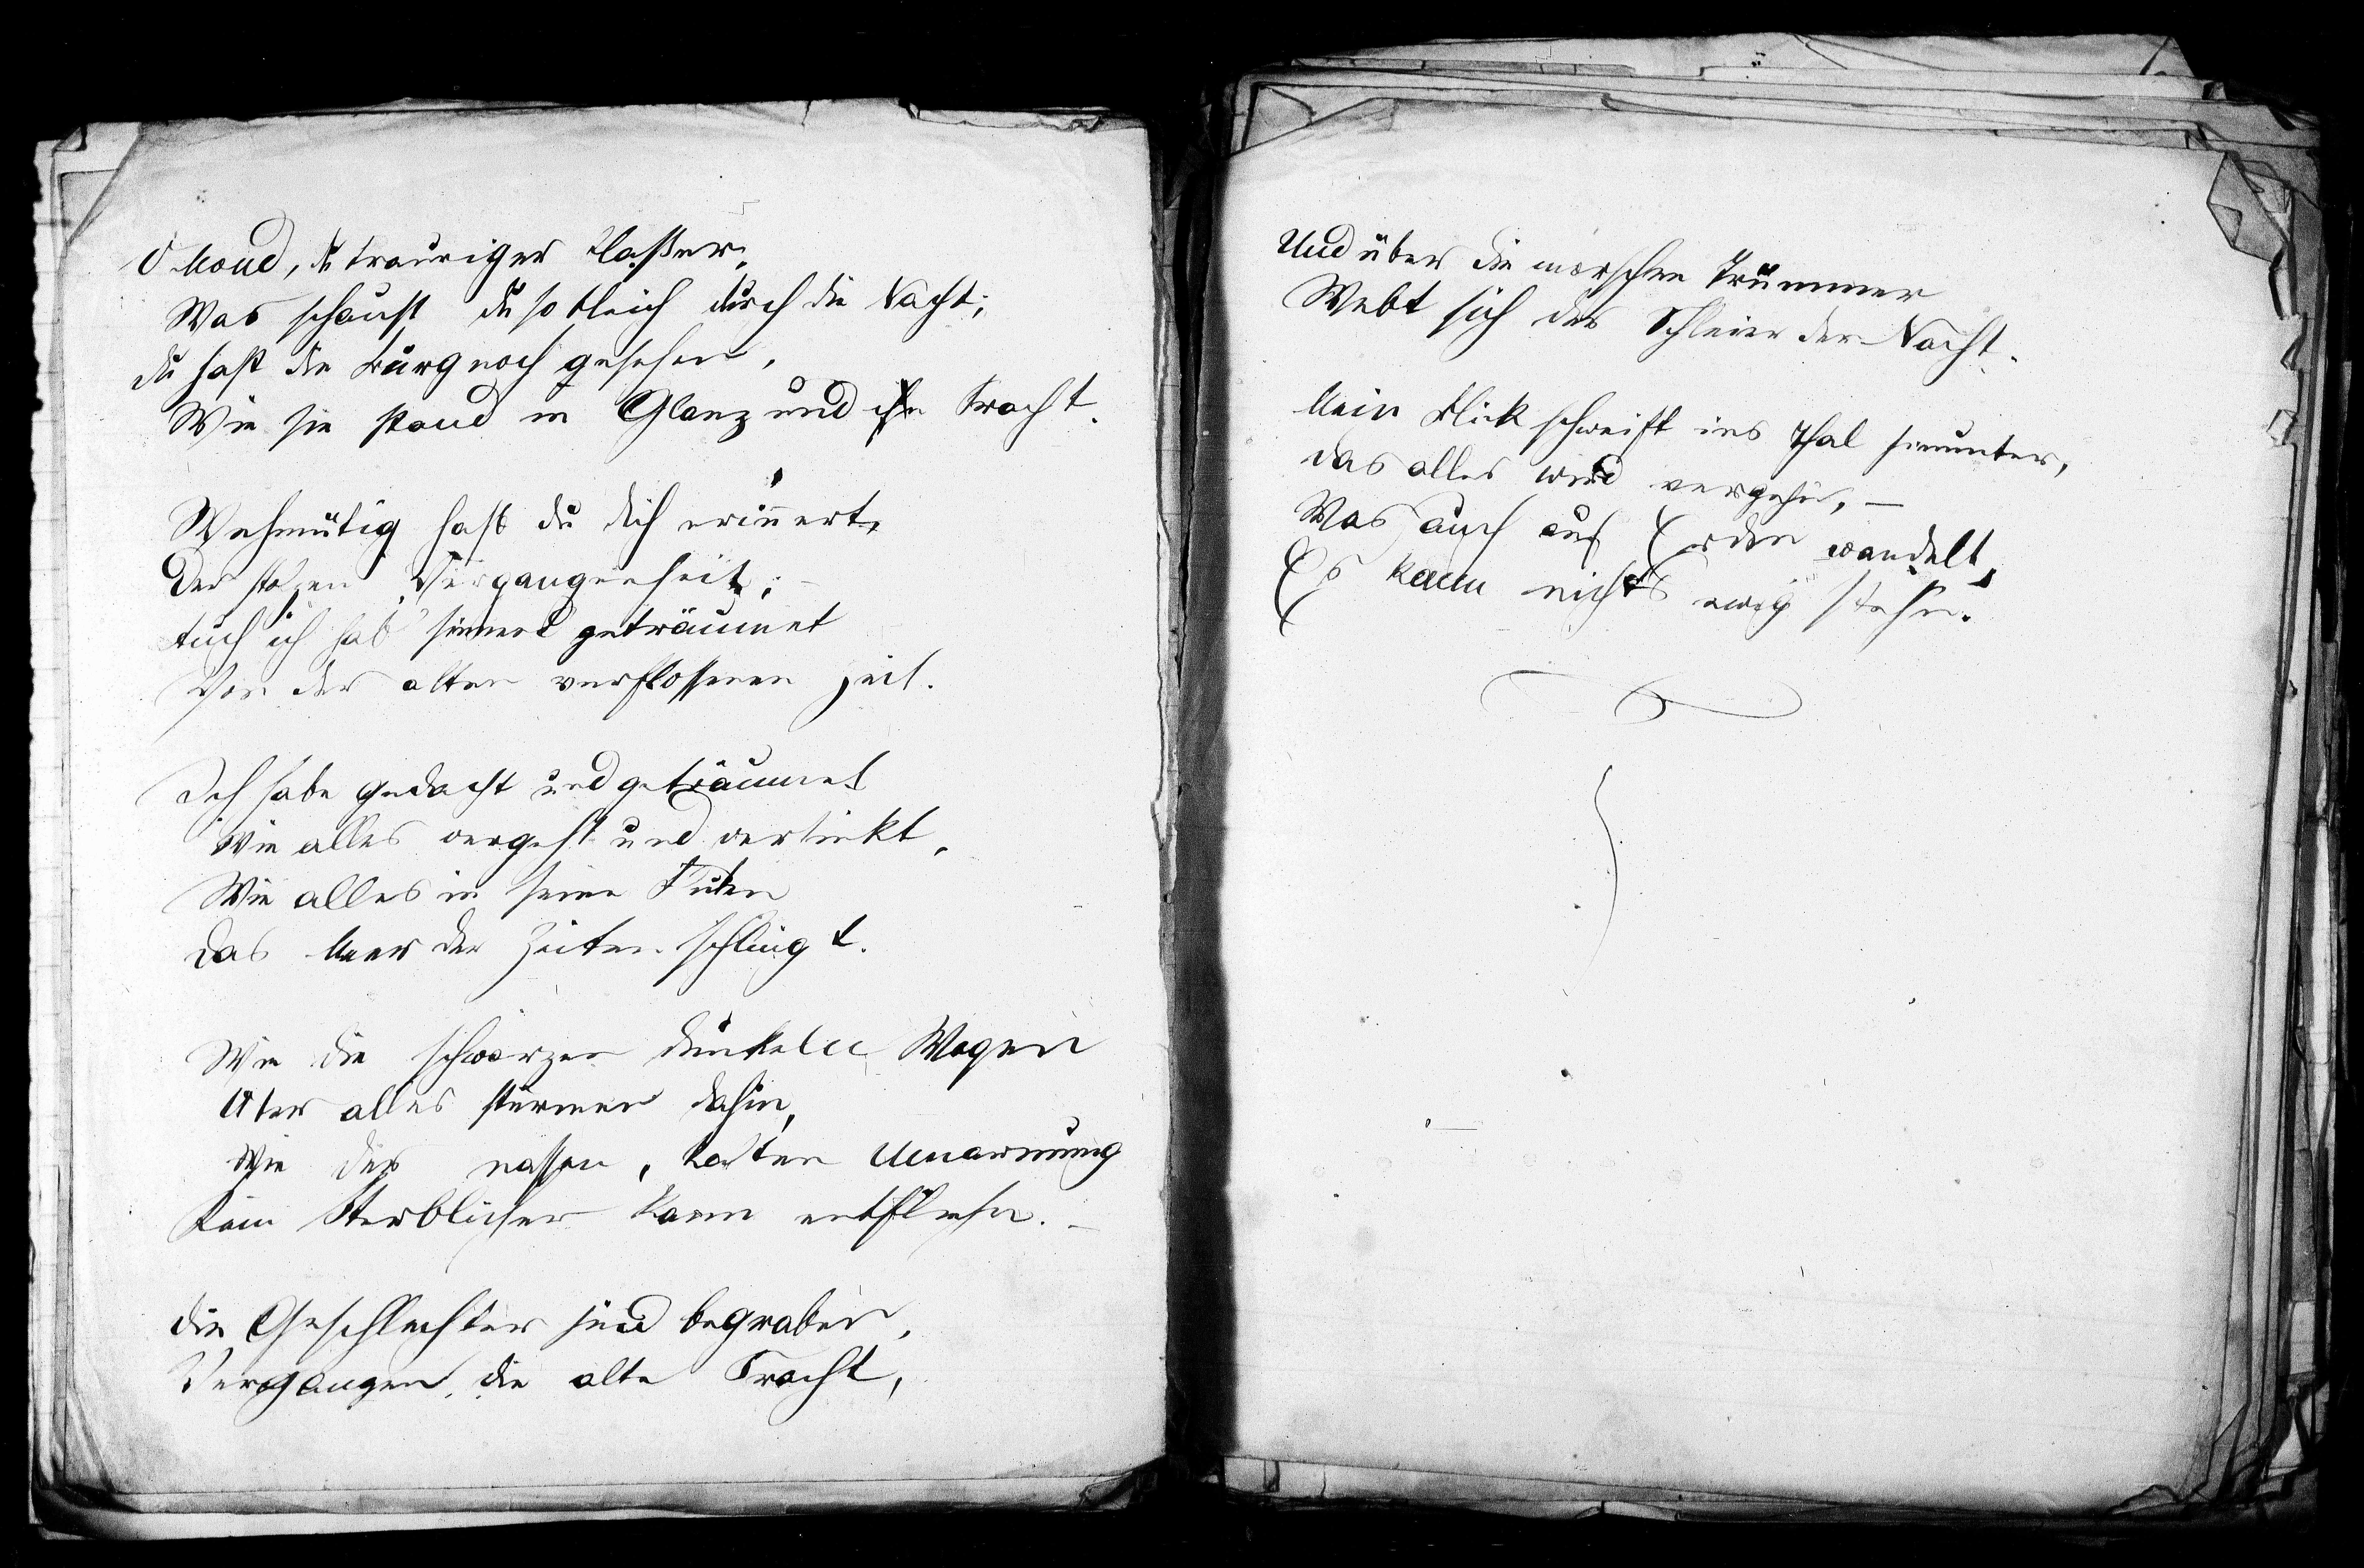 O Mond, du trauriger Blaßer,
Was schaust du so bleich durch die Nacht;
Du hast die Burg noch gesehen,
Wie sie stand in Glanz und in Pracht.
Wehmütig hast du dich erinnert,
Der stolzen Vergangenheit; –
Auch ich hab' sinnend geträumet
Von der alten verflossenen Zeit.
Ich habe gedacht und geträumet
Wie alles vergeht und versinkt,
Wie alles in seine Fluten
Das Meer der Zeiten schlingt.
Wie die schwarzen dunkelen Wogen
Über alles stürmen dahin,
Wie der nassen, kalten Umarmung
Kein Sterblicher kann entfliehn. –
Die Geschlechter sind begraben,
Vergangen die alte Pracht,
Und über die morschen Trümmer
Webt sich der Schleier der Nacht.
Mein Blick schweift ins Thal hinunter,
Das alles wird vergehn, –
Was auch auf Erden wandelt,
Es kann nichts ewig stehn.